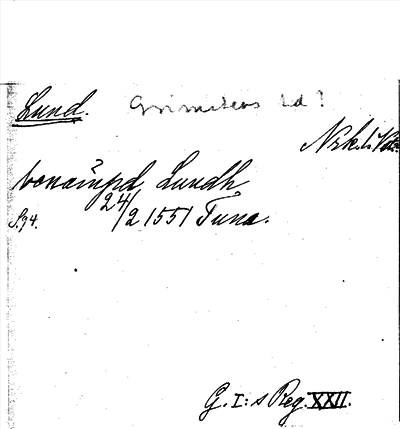 Lund. Grimstens hd?
Nrk. l. Vst.
bonaͤmpd, Lundh,
S. 94. 24/2 1551 Tuna.
G. I:s Reg. XXII.